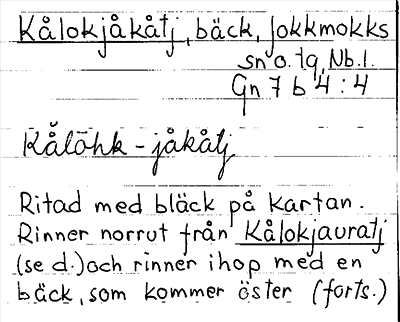 Kålokjåkåtj, bäck, Jokkmokks
sn o. tg, Nb. l.
Gn 7 b 4 : 4
Kålōhk - jåkåtj
Ritad med bläck på kartan.
Rinner norrut från Kålokjauratj
(se d.) och rinner ihop med en
bäck, som kommer öster (forts.)